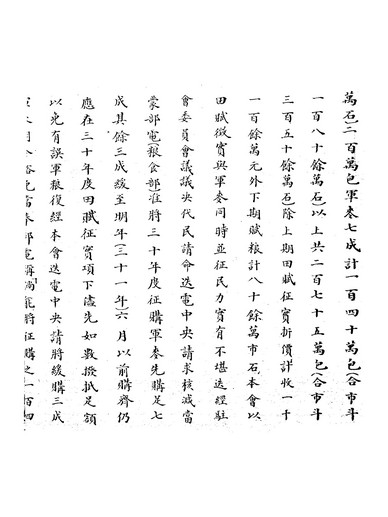 萬石)二百萬包軍麥七成計一百四十萬包(合市斗
一百八十餘萬石)以上共二百七十五萬包(合市斗
三百五十餘萬石)除上期田賦征實折價計收一千
一百餘萬元外下期賦糧計八十餘萬市石本會以
田賦徵實與軍麥同時並征民力實有不堪迭經駐
會委員會議議決代民請命迭電中央請求核減當
蒙部電(粮食部)准將三十年度征購軍麥先購足七
成其餘三成緩至明年(三十一年)六月以前購齊仍
應在三十年度田賦征實項下儘先如數撥抵足額
以免有誤軍粮復經本會迭電中央請將緩購三成
將征購之一百四